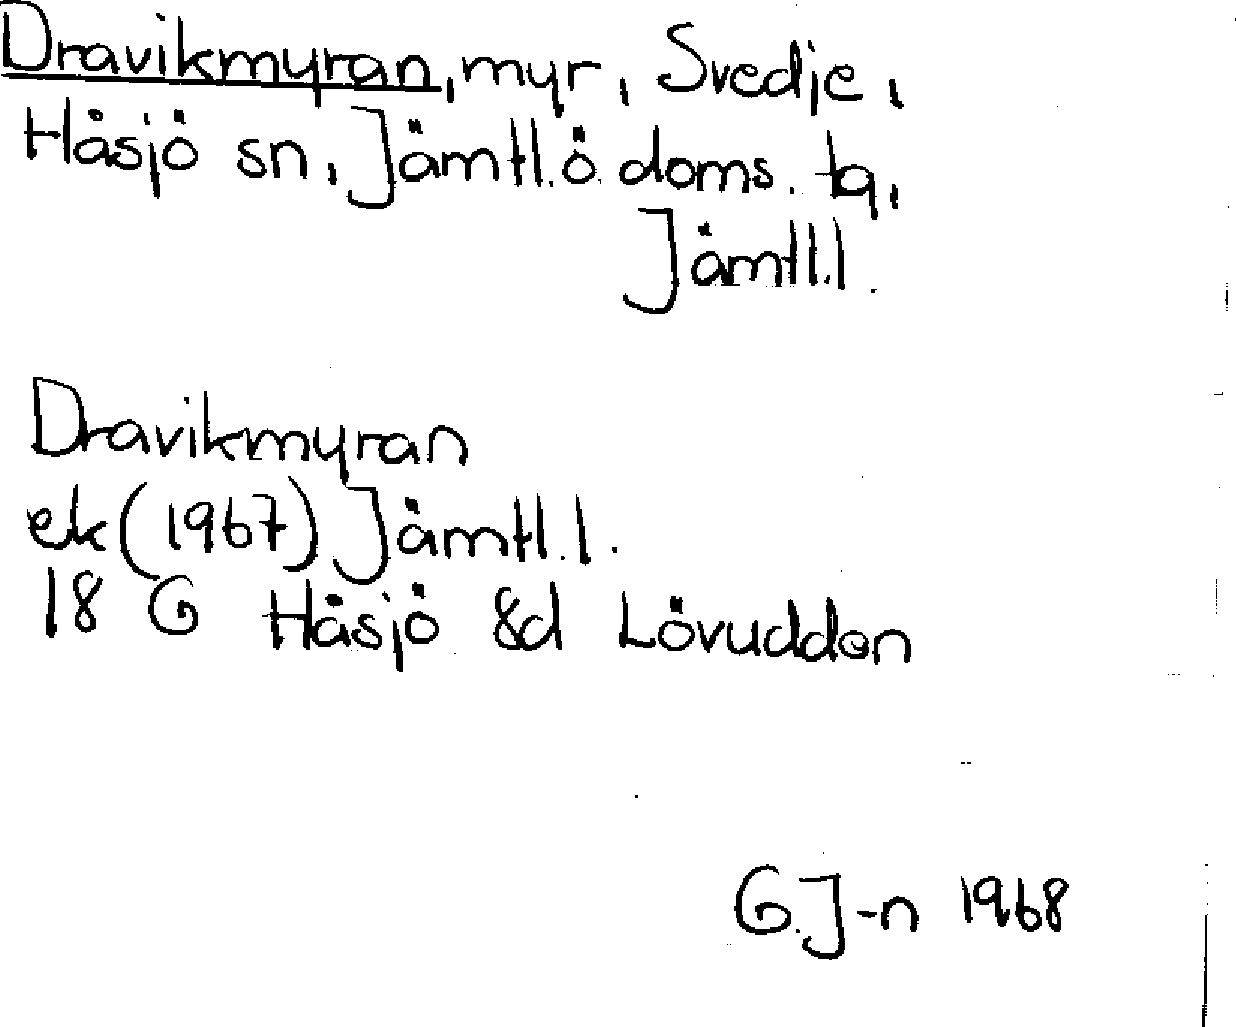 Dravikmyran, myr, Svedje,
Håsjö sn, Jämtl.ö. doms. tg,
Jämtl.l.
Dravikmyran
ek (1967) Jämtl.l.
18 G Håsjö 8d Lövudden
G.J-n 1968